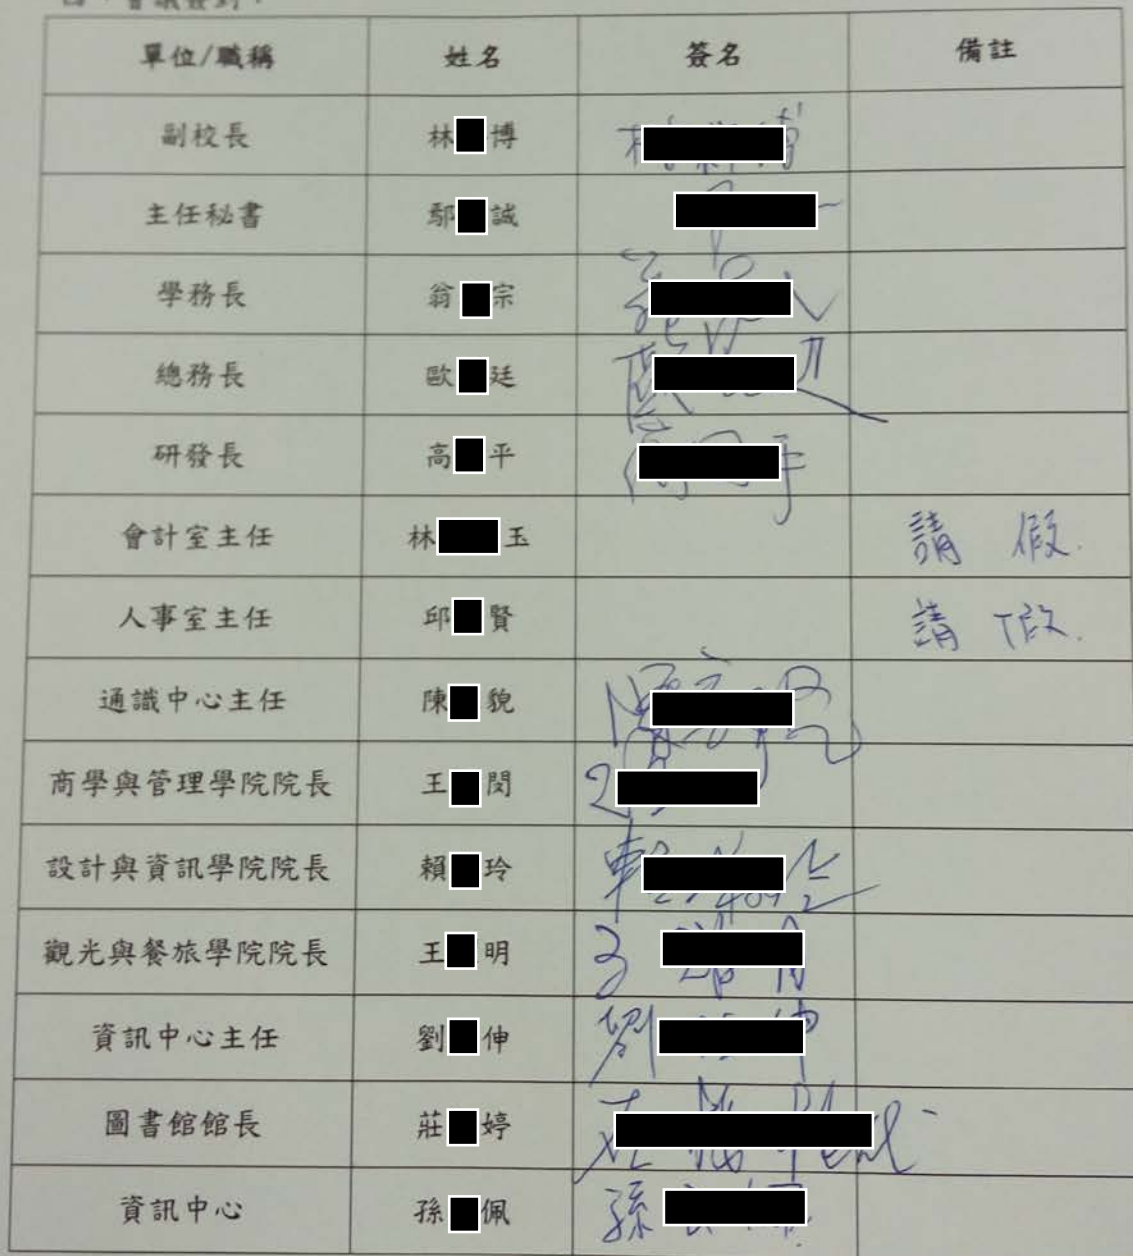 四、會議簽到：
單位/職稱 姓名 簽名 備註
副校長 林 博
主任秘書 鄢 誠
學務長 翁 宗
總務長 歐 廷
研發長 高 平
會計室主任 林 玉 請 假.
人事室主任 邱 賢 請 假.
通識中心主任 陳 貌
商學與管理學院院長 王 閔
設計與資訊學院院長 賴 玲
觀光與餐旅學院院長 王 明
資訊中心主任 劉 伸 劉
圖書館館長 莊 婷
資訊中心 孫 佩 孫